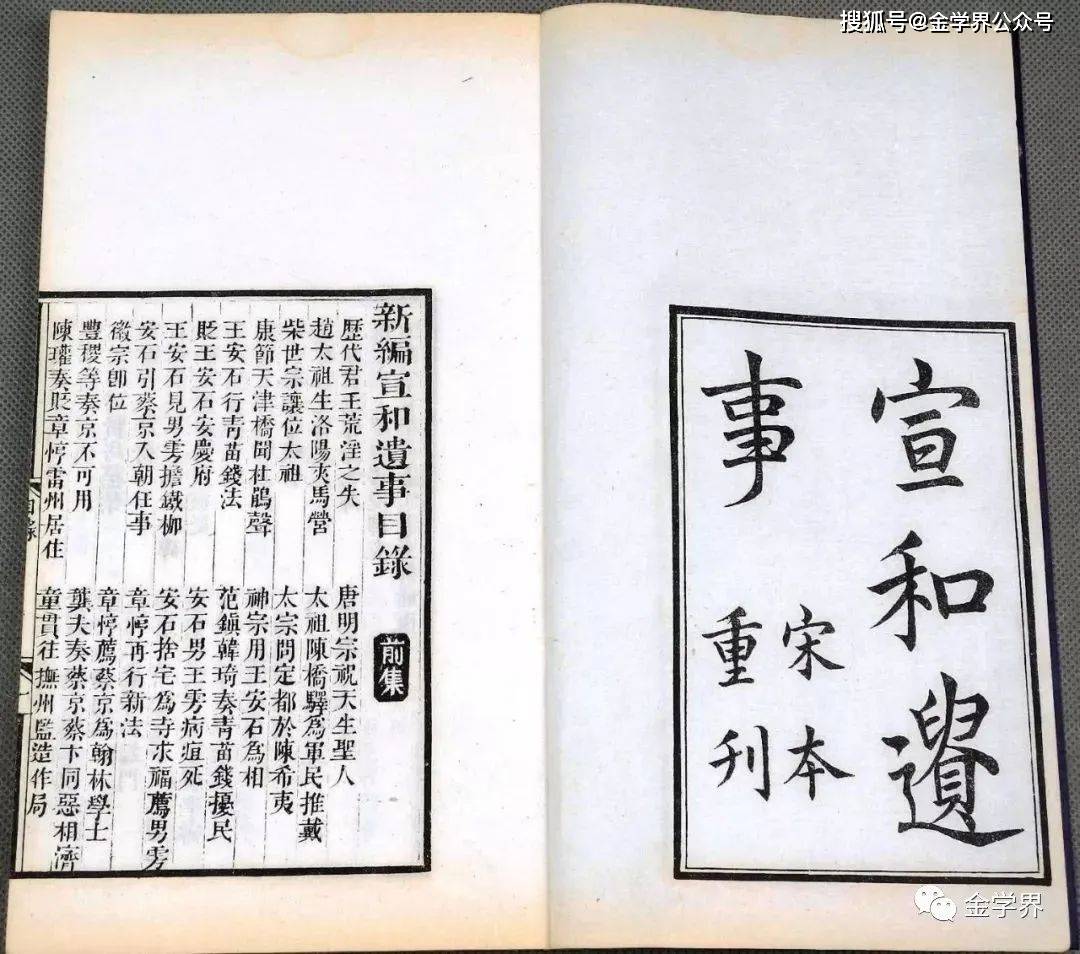 搜狐号@金学界公众号
宣和遺
事
宋本
重刊
新編宣和遺事目錄 前集
歷代君王荒淫之失 唐明宗祝天生聖人
趙太祖生洛陽夾馬營 太祖陳橋驛為軍民推戴
柴世宗讓位太祖 太宗問定都於陳希夷
康節天津橋聞杜鵑聲 神宗用王安石為相
王安石行青苗錢法 范鎮韓琦奏青苗錢擾民
貶王安石安慶府 安石男王雱病疽死
王安石見男雱擔鐵枷 安石捨宅為寺求福薦男雱
安石引蔡京入朝任事 章惇再行新法
徽宗卽位 章惇薦蔡京為翰林學士
豐稷等奏京不可用 龔夫奏蔡京蔡卞同惡相濟
陳瓘奏貶章惇雷州居住 童貫往撫州監造作局
目錄
金学界